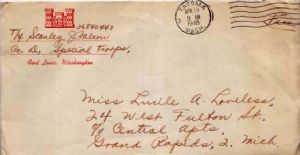 36840440
T/4 Stanley J. Falcon
Co. D, Special Troops,
Fort Lewis, Washington
TACOMA
APR 13
9 AM
1945
WASH.
Free
Miss Lucile A. Loveless,
24 West Fulton St.
c/o Central Apts,
Grand Rapids, 2. Mich.